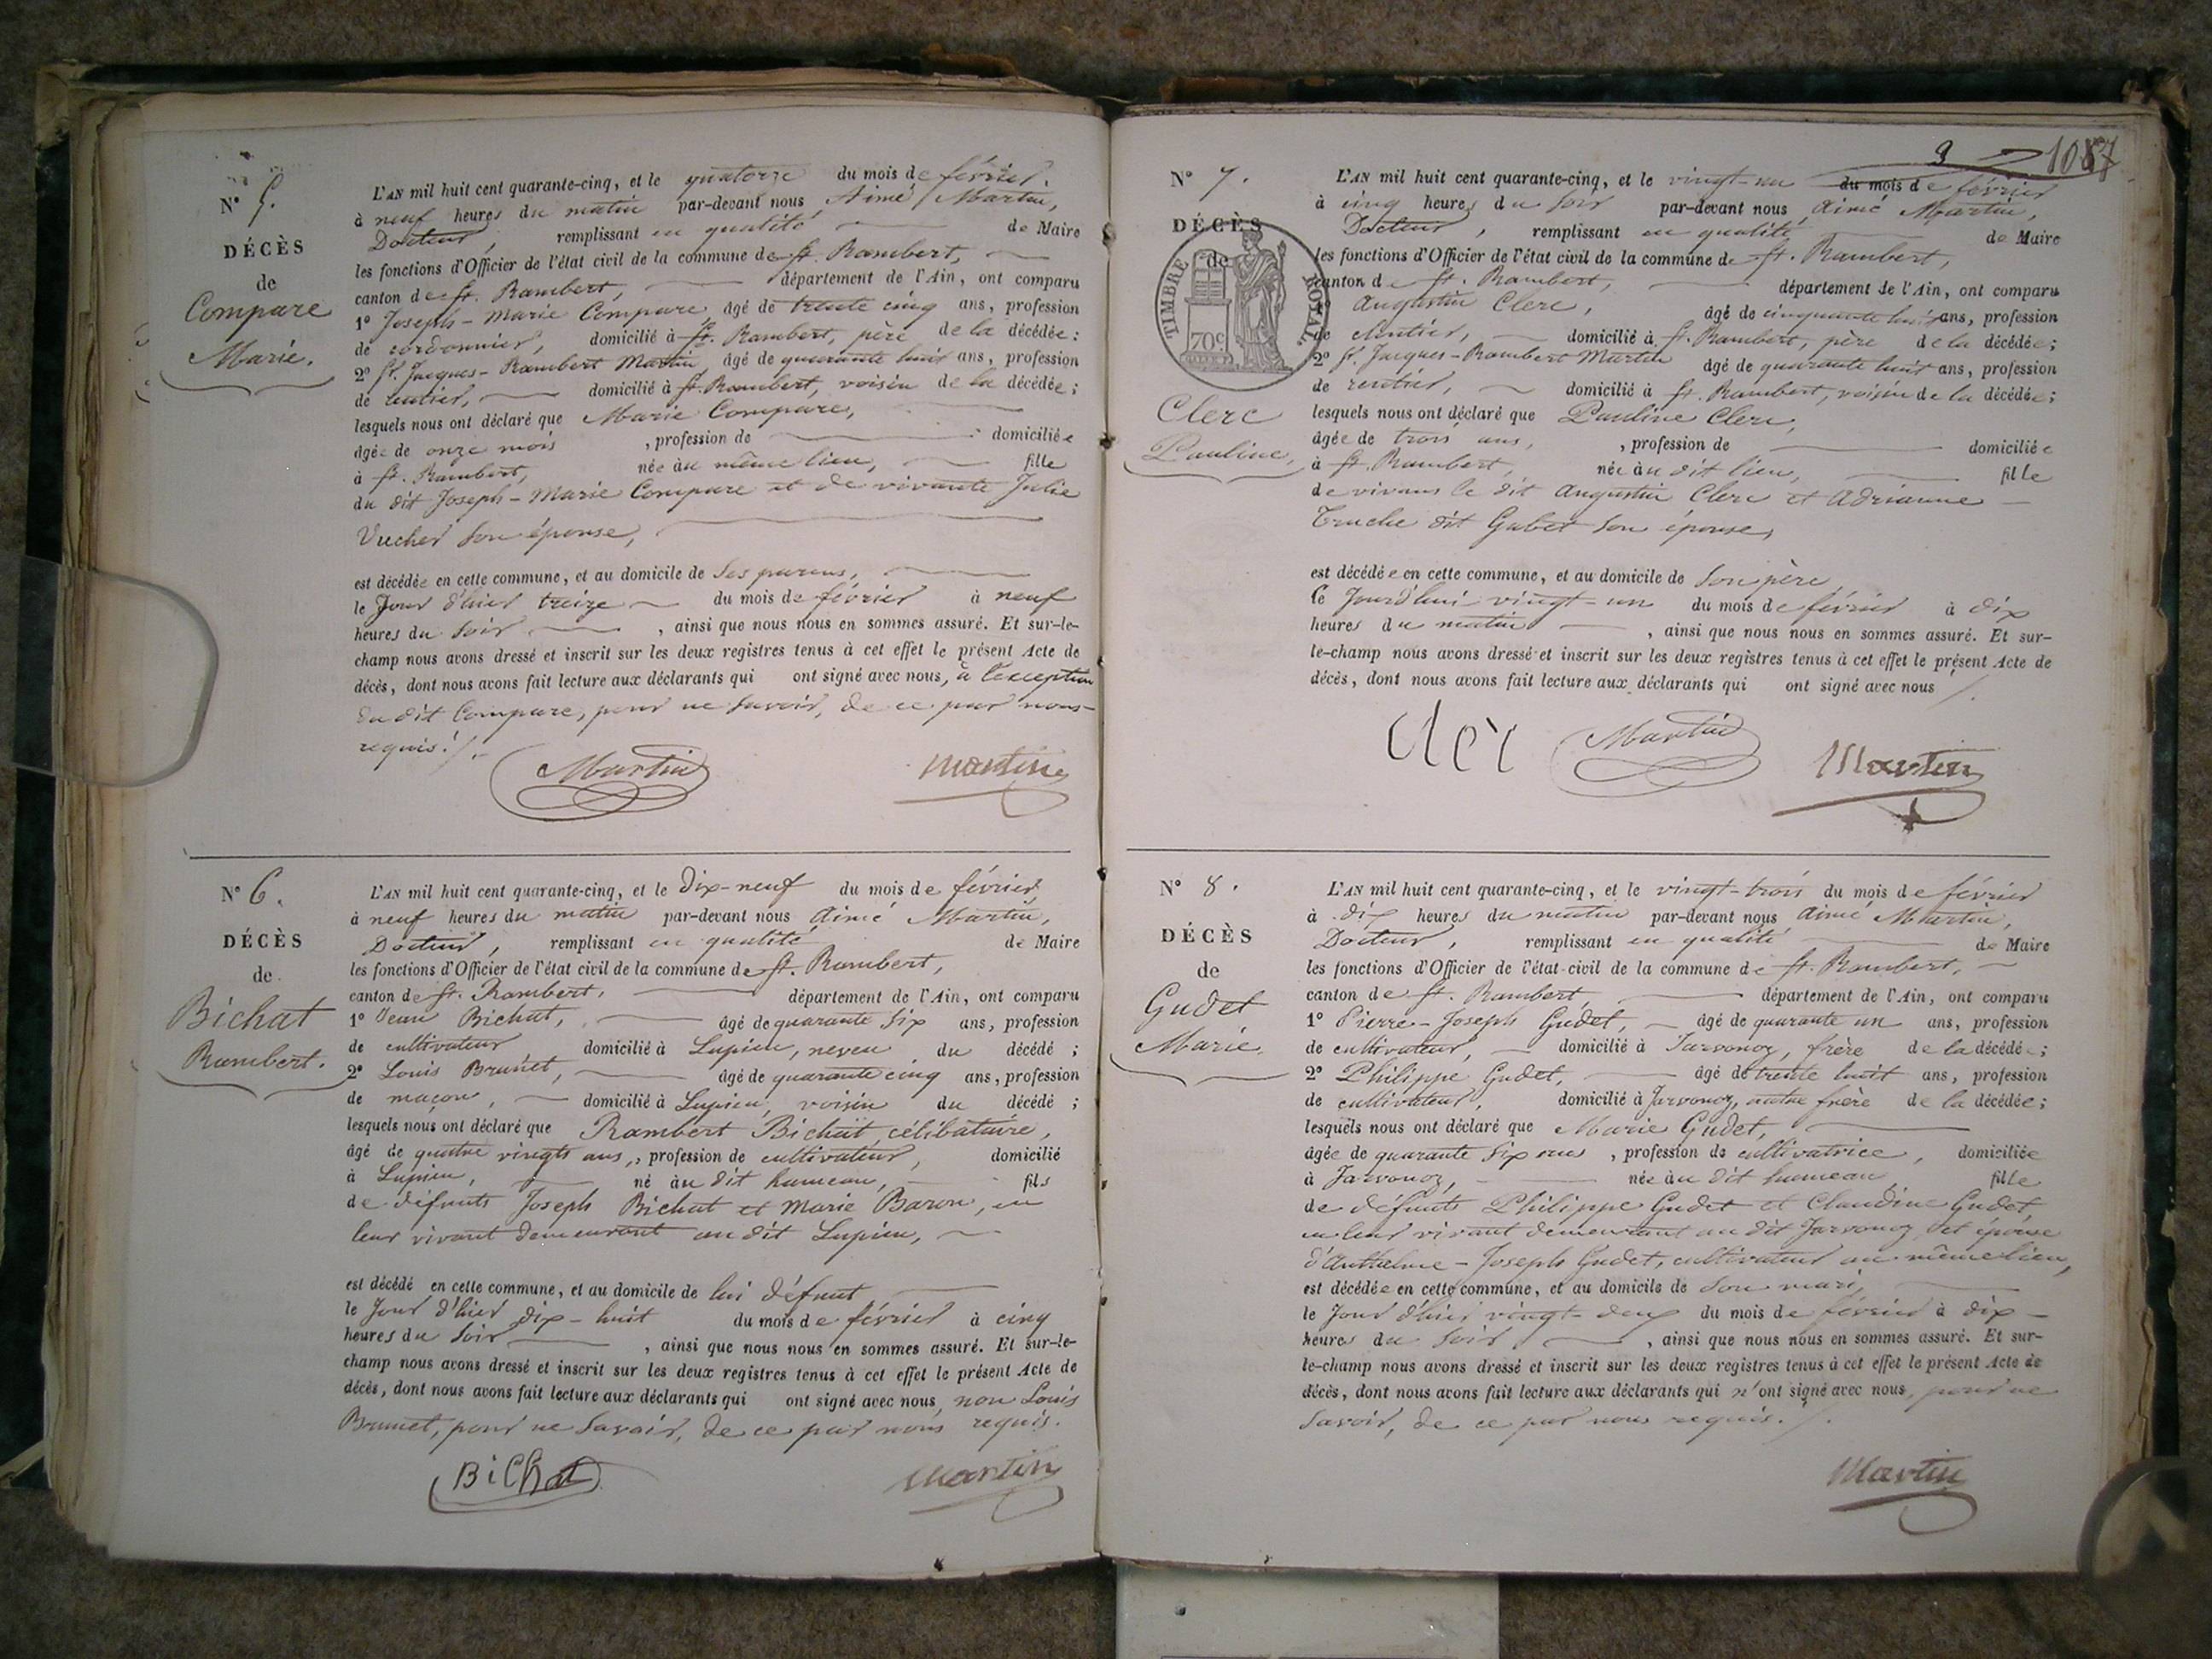 N° 5.
DÉCÈS
de
Compare
Marie.
L'AN mil huit cent quarante-cinq, et le quatorze du mois de février.
à neuf heures du matin par-devant nous Aimé Martin,
Docteur, remplissant en qualité de Maire
les fonctions d'Officier de l'état civil de la commune de St. Rambert,
canton de St. Rambert, département de l'Ain, ont comparu
1° Joseph-Marie Compare âgé de trente cinq ans, profession
de cordonnier, domicilié à St. Rambert, père de la décédée;
2° St. Jacques-Rambert Martin âgé de quarante huit ans, profession
de rentier, domicilié à St. Rambert, voisin de la décédée;
lesquels nous ont déclaré que Marie Compare,
âgée de onze mois, profession de domiciliée
à St. Rambert, née au même lieu, fille
du dit Joseph-Marie Compare et de vivante Julie
Vucher son épouse,
est décédée en cette commune, et au domicile de ses parens,
le Jour d'hier treize du mois de février à neuf
heures du soir, ainsi que nous nous en sommes assuré. Et sur-le-
champ nous avons dressé et inscrit sur les deux registres tenus à cet effet le présent Acte de
décès, dont nous avons fait lecture aux déclarants qui ont signé avec nous, à l'exception
du dit Compare, pour ne savoir, de ce par nous
requis./.
Martin Martin
N° 6.
DÉCÈS
de
Bichat
Rambert.
L'AN mil huit cent quarante-cinq, et le dix-neuf du mois de février
à neuf heures du matin par-devant nous Aimé Martin,
Docteur, remplissant en qualité de Maire
les fonctions d'Officier de l'état civil de la commune de St. Rambert,
canton de St. Rambert, département de l'Ain, ont comparu
1° Jean Bichat, âgé de quarante six ans, profession
de cultivateur domicilié à Lupieu, neveu du décédé;
2° Louis Brunet, âgé de quarante cinq ans, profession
de maçon, domicilié à Lupieu, voisin du décédé;
lesquels nous ont déclaré que Rambert Bichat, célibataire,
âgé de quatre vingts ans, profession de cultivateur, domicilié
à Lupieu, né au dit hameau, fils
de défunts Joseph Bichat et Marie Baron, en
leur vivant demeurant au dit Lupieu,
est décédé en cette commune, et au domicile de lui défunt
le Jour d'hier dix-huit du mois de février à cinq
heures du soir, ainsi que nous nous en sommes assuré. Et sur-le-
champ nous avons dressé et inscrit sur les deux registres tenus à cet effet le présent Acte de
décès, dont nous avons fait lecture aux déclarants qui ont signé avec nous, non Louis
Brunet, pour ne savoir, de ce par nous requis.
Bichat Martin
9 1087
N° 7.
DÉCÈS
de
TIMBRE ROYAL.
70c
Clerc
Pauline,
L'AN mil huit cent quarante-cinq, et le vingt-un du mois de février
à cinq heures du soir par-devant nous Aimé Martin,
Docteur, remplissant en qualité de Maire
les fonctions d'Officier de l'état civil de la commune de St. Rambert,
canton de St. Rambert, département de l'Ain, ont comparu
Augustin Clerc, âgé de cinquante huit ans, profession
de domicilié à St. Rambert, père de la décédée;
2° St. Jacques-Rambert Martin âgé de quarante huit ans, profession
de rentier, domicilié à St. Rambert, voisin de la décédée;
lesquels nous ont déclaré que Pauline Clerc,
âgée de trois ans, profession de domiciliée
à St. Rambert, née au dit lieu, fille
de vivans le dit Augustin Clerc et Adrianne
Truche dit Gabet son épouse,
est décédée en cette commune, et au domicile de son père
le Jourd'hui vingt-un du mois de février à dix
heures du matin, ainsi que nous nous en sommes assuré. Et sur-
le-champ nous avons dressé et inscrit sur les deux registres tenus à cet effet le présent Acte de
décès, dont nous avons fait lecture aux déclarants qui ont signé avec nous /.
Clerc Martin Martin
N° 8.
DÉCÈS
de
Gudet
Marie,
L'AN mil huit cent quarante-cinq, et le vingt-trois du mois de février
à dix heures du matin par-devant nous Aimé Martin,
Docteur, remplissant en qualité de Maire
les fonctions d'Officier de l'état civil de la commune de St. Rambert,
canton de St. Rambert, département de l'Ain, ont comparu
1° Pierre-Joseph Gudet, âgé de quarante un ans, profession
de cultivateur, domicilié à Javornoz, frère de la décédée;
2° Philippe Gudet, âgé de trente huit ans, profession
de cultivateur, domicilié à Javornoz, autre frère de la décédée;
lesquels nous ont déclaré que Marie Gudet,
âgée de quarante six ans, profession de cultivatrice, domiciliée
à Javornoz, née au dit hameau fille
de défunts Philippe Gudet et Claudine Gudet,
en leur vivant demeurant au dit Javornoz, et épouse
d'Anthelme-Joseph Gudet, cultivateur au même lieu,
est décédée en cette commune, et au domicile de son mari,
le Jour d'hier vingt-deux du mois de février à dix
heures du soir, ainsi que nous nous en sommes assuré. Et sur-
le-champ nous avons dressé et inscrit sur les deux registres tenus à cet effet le présent Acte de
décès, dont nous avons fait lecture aux déclarants qui n'ont signé avec nous, pour ne
savoir, de ce par nous requis./.
Martin